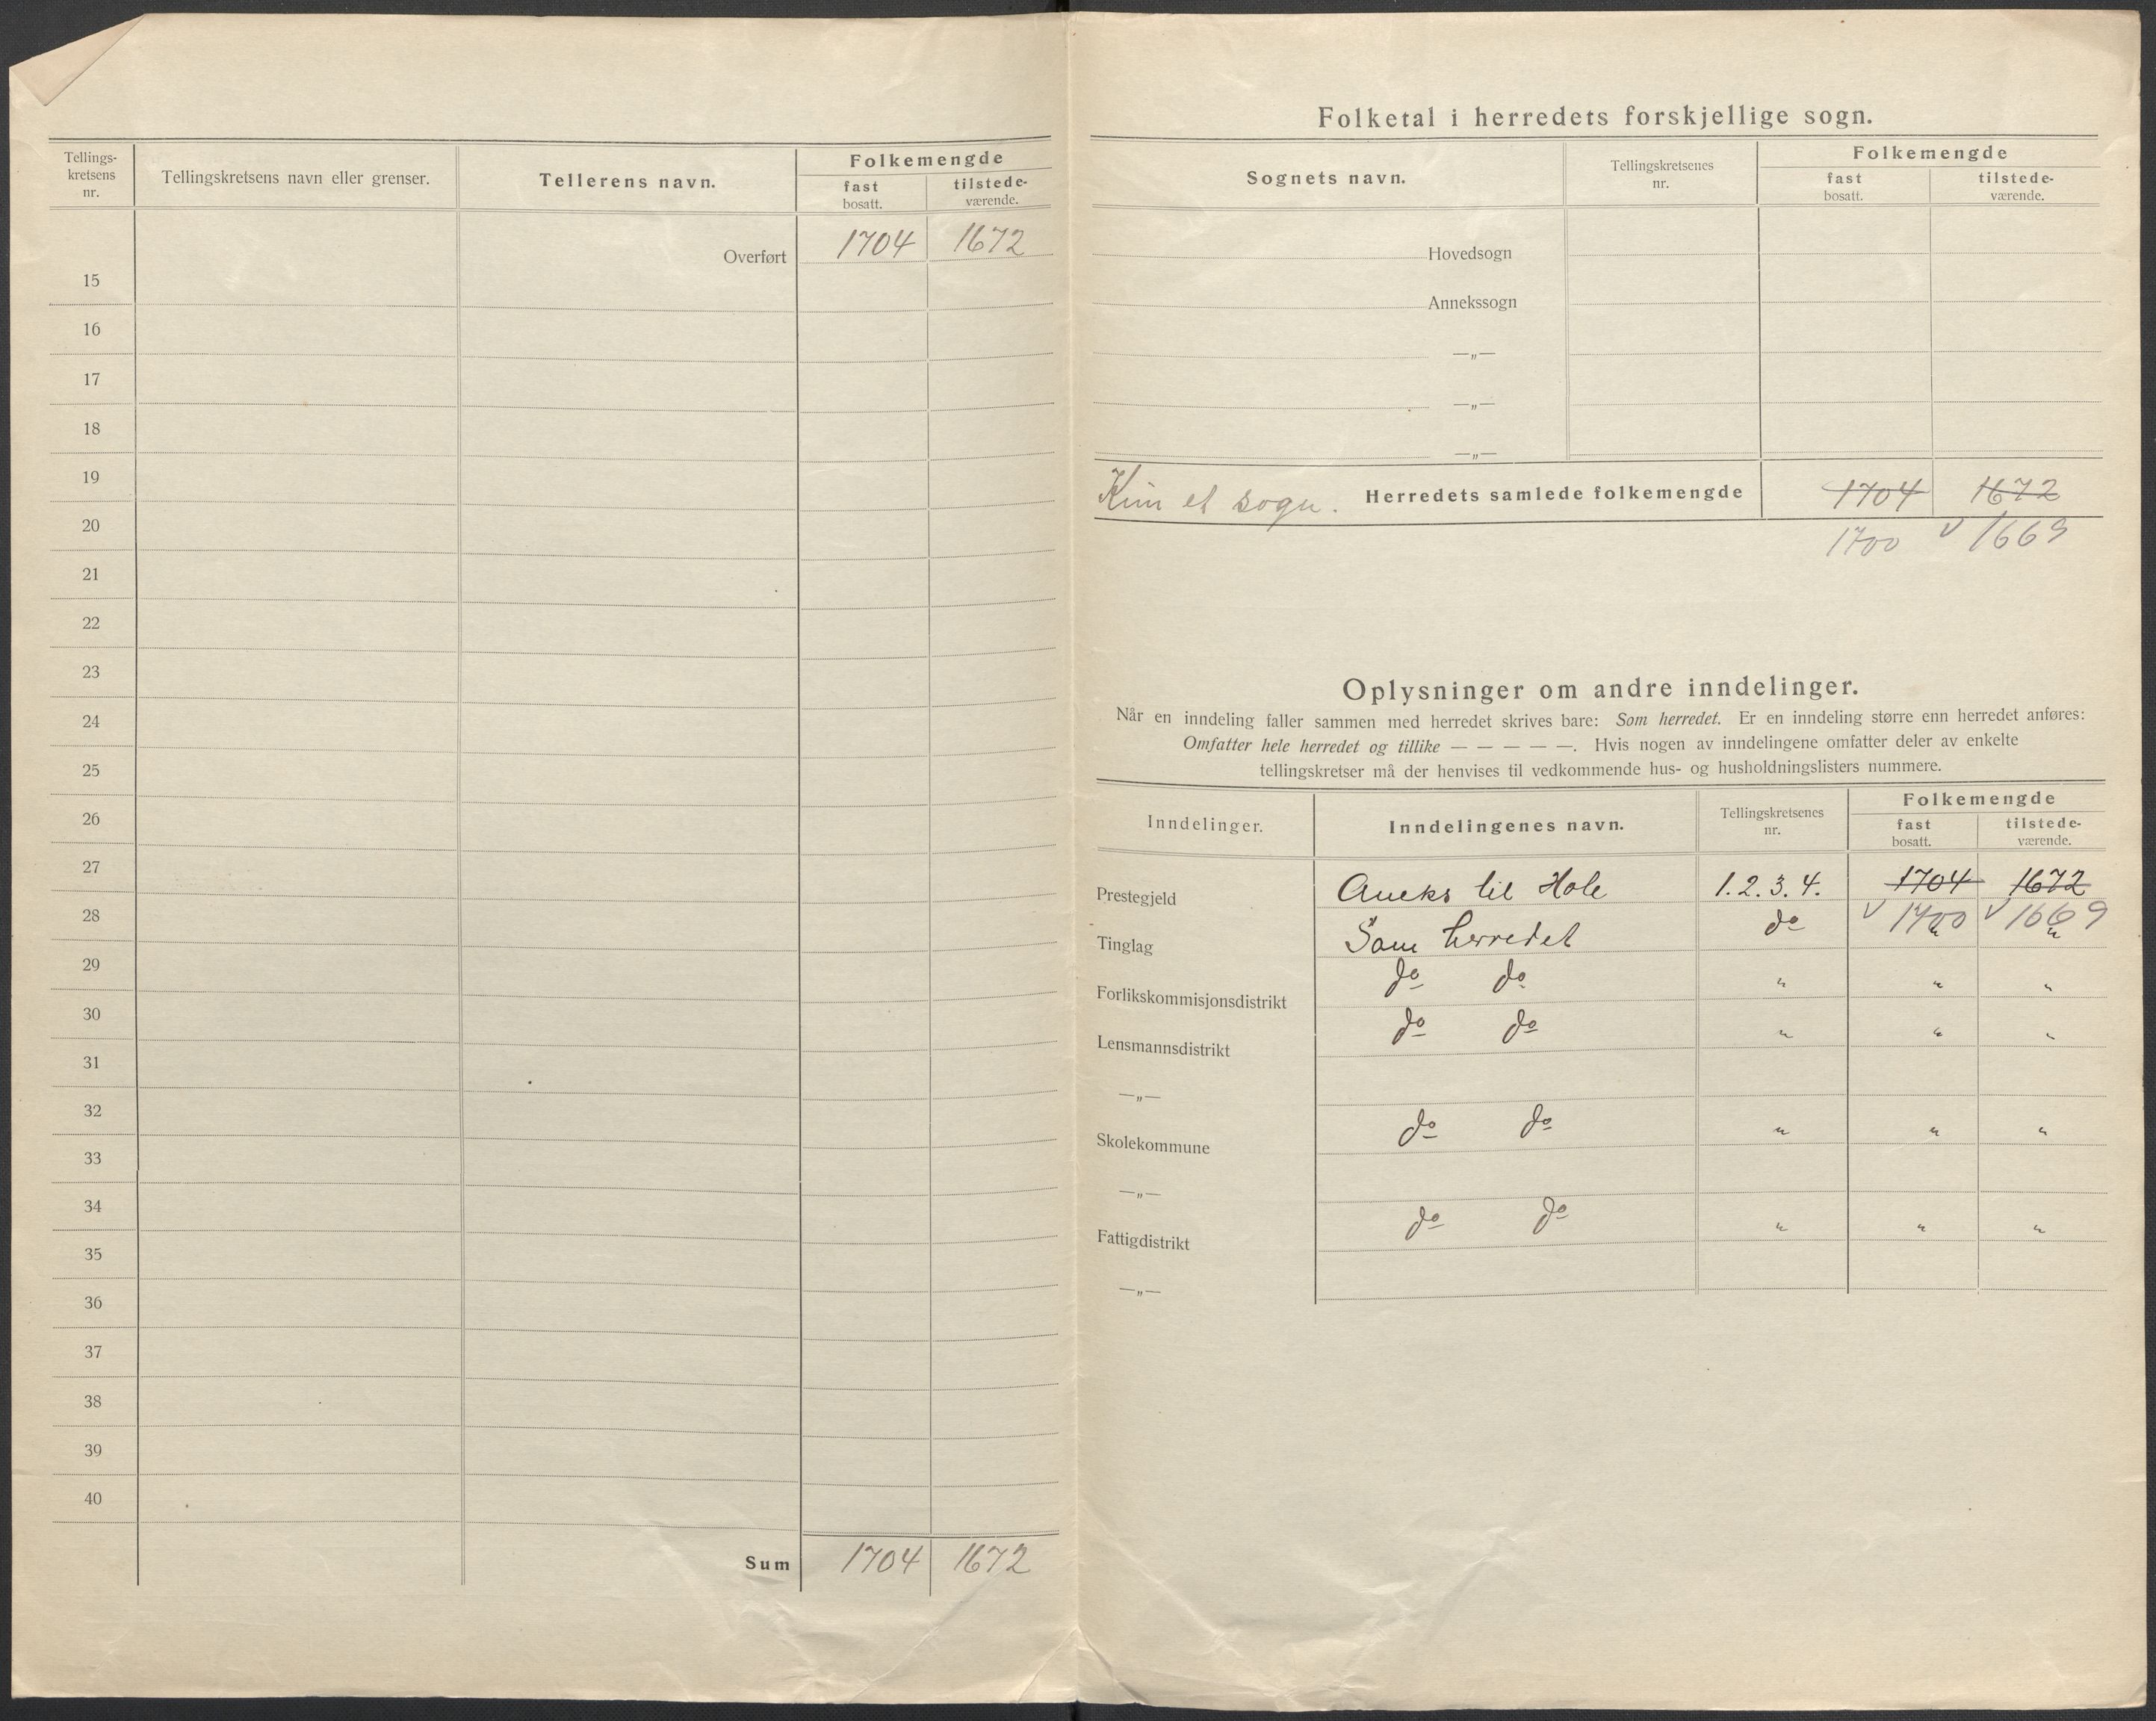 Tellings-
kretsens
nr.
Tellingskretsens navn eller grenser.
Tellerens navn.
Folkemengde
fast
bosatt.
tilstede-
værende.
Overført 1704 1672
15
16
17
18
19
20
21
22
23
24
25
26
27
28
29
30
31
32
33
34
35
36
37
38
39
40
Sum 1704 1672
Folketal i herredets forskjellige sogn.
Sognets navn.
Tellingskretsenes
nr.
Folkemengde
fast
bosatt.
tilstede-
værende.
Hovedsogn
Annekssogn
—„—
—„—
—„—
Kun et sogn. Herredets samlede folkemengde 1704 1672
1700 v 1669
Oplysninger om andre inndelinger.
Når en inndeling faller sammen med herredet skrives bare: Som herredet. Er en inndeling større enn herredet anføres:
Omfatter hele herredet og tillike — — — — —. Hvis nogen av inndelingene omfatter deler av enkelte
tellingskretser må der henvises til vedkommende hus- og husholdningslisters nummere.
Inndelinger.
Inndelingenes navn.
Tellingskretsenes
nr.
Folkemengde
fast
bosatt.
tilstede-
værende.
Prestegjeld Aneks til Hole 1.2.3.4. 1704 1672
v 1700 v 1669
Tinglag Som herredet do " "
Forlikskommisjonsdistrikt do do " " "
Lensmannsdistrikt do do " " "
—„—
Skolekommune do do " " "
—„—
Fattigdistrikt do do " " "
—„—